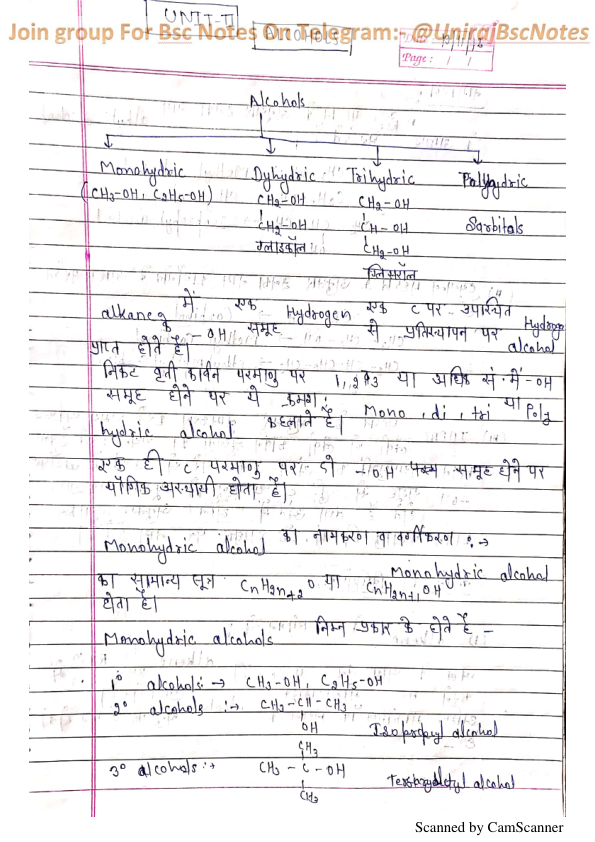 UNIT-II
Join group For Bsc Notes On Telegram:- @UnirajBscNotes
Alcohols
Page:
Alcohols
Monohydric Dyhydric Trihydric Polyhydric
(CH3-OH, C2H5-OH) CH2-OH CH2-OH
CH2-OH CH-OH Sorbitals
ग्लाइकॉल CH2-OH
ग्लिसरॉल
alkanes में एक Hydrogen एक C पर उपस्थित Hydrogen
के -OH समूह से प्रतिस्थापन पर alcohol
प्राप्त होते हैं।
निकट वृती कार्बन परमाणु पर 1, 2, 3 या अधिक सं. में -OH
समूह होने पर ये क्रमश: Mono, di, tri या Poly
hydric alcohol कहलाते हैं।
एक ही C परमाणु पर दो -OH समूह होने पर
यौगिक अस्थायी होता है।
Monohydric alcohol का नामकरण व वर्गीकरण :→
Monohydric alcohol
का सामान्य सूत्र CnH2n+2O या CnH2n+1OH
होता है।
Monohydric alcohols निम्न प्रकार के होते हैं -
1° alcohols :→ CH3-OH, C2H5-OH
2° alcohols :→ CH3-CH-CH3
OH Isopropyl alcohol
CH3
3° alcohols :→ CH3-C-OH
CH3 alcohol
Scanned by CamScanner